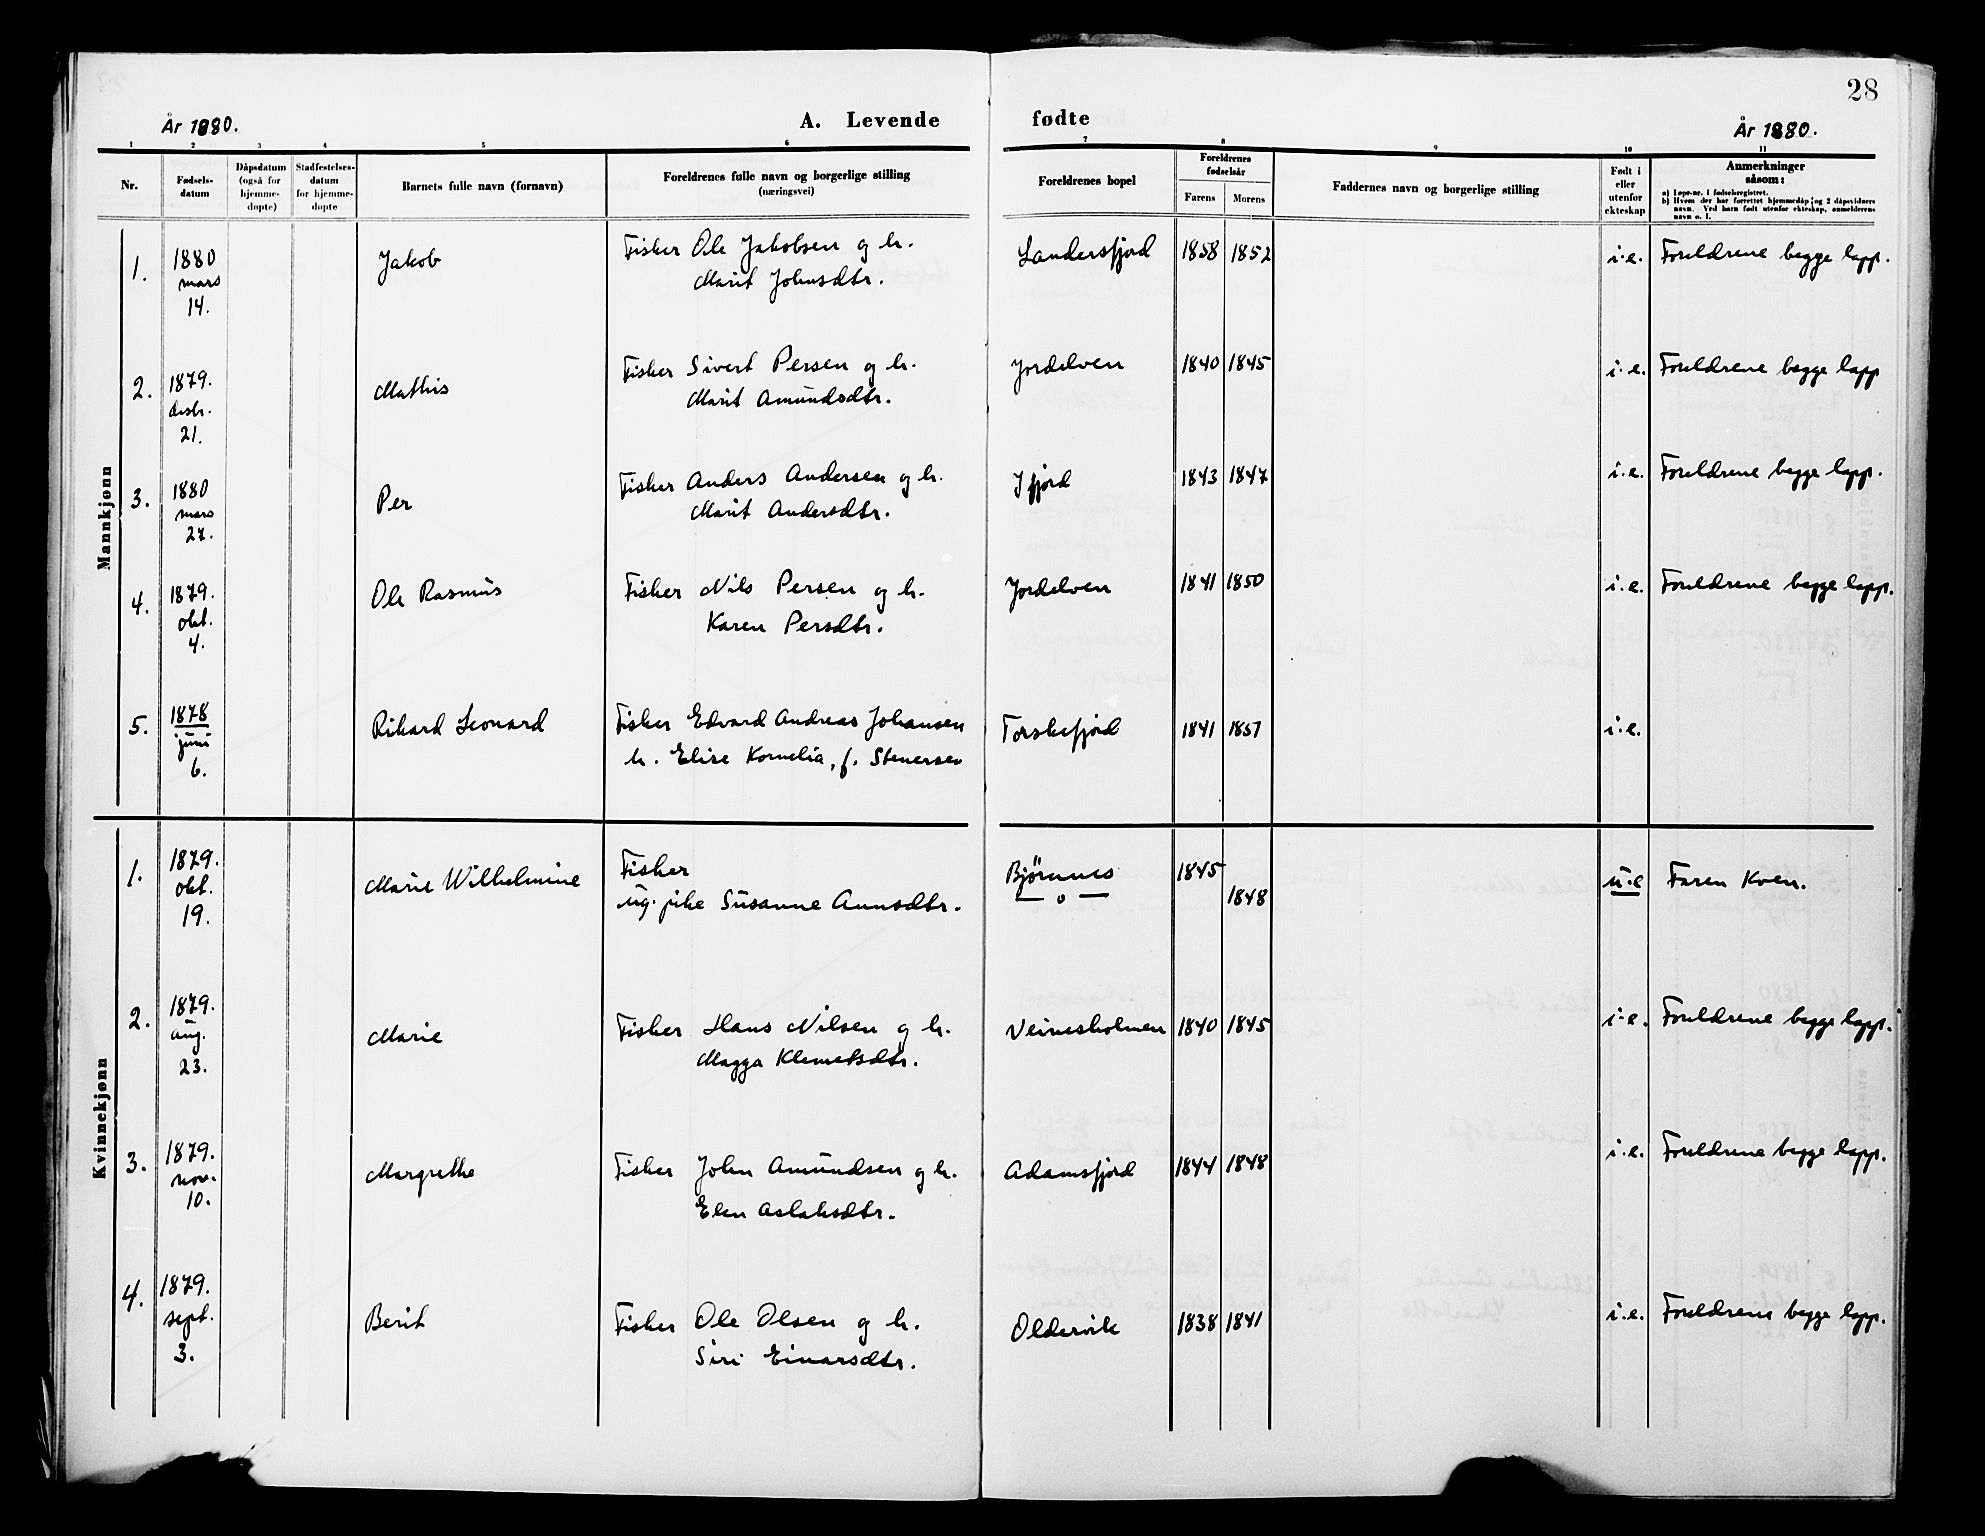 28
År 1880.
A. Levende fødte
År 1880.
1 2 3 4 5 6 7 8 9 10 11
Nr.
Fødsels-
datum
Dåpsdatum
(også for
hjemme-
døpte)
Stadfestelses-
datum
for hjemme-
døpte
Barnets fulle navn (fornavn)
Foreldrenes fulle navn og borgerlige stilling
(næringsvei)
Foreldrenes bopel
Foreldrenes
fødselsår
Farens Morens
Faddernes navn og borgerlige stilling
Født i
eller
utenfor
ekteskap
Anmerkninger
såsom:
a) Løpe-nr. i fødselsregistret.
b) Hvem der har forrettet hjemmedåp og 2 dåpsvidners
navn. Ved barn født utenfor ekteskap, anmelderens
navn o. l.
Mannkjønn
1. 1880 Jakob Fisker Ole Jakobsen og h. Landersfjord 1858 1852 i.e. Foreldrene begge lapp.
mars Marit Johnsdtr.
14.
2. 1879. Mathis Fisker Sivert Persen og h. Jordelven 1840 1845 i.e. Foreldrene begge lapp
desbr. Marit Amundsdtr.
21.
3. 1880 Per Fisker Anders Andersen og h. Ifjord 1843 1847 i.e. Foreldrene begge lapp.
mars Marit Andersdtr.
27.
4. 1879. Ole Rasmus Fisker Nils Persen og h. Jordelven 1841 1850 i.e. Foreldrene begge lapp.
okt. Karen Persdtr.
4.
5. 1878 Rikard Leonard Fisker Edvard Andreas Johansen Torskefjord 1841 1857 i.e.
juni h. Elise Kornelia, f. Stenersen
6.
Kvinnekjønn
1. 1879. Marie Wilhelmine Fisker Bjørnnes 1845 u.e Faren Kven.
okt. ug. pike Susanne Aunsdtr. — o — 1848
19.
2. 1879. Marie Fisker Hans Nilsen og h. Veinesholmen 1840 1845 i.e. Foreldrene begge lapp.
aug. Magga Klemetsdtr.
23.
3. 1879. Margrethe Fisker John Amundsen og h. Adamsfjord 1844 1848 i.e. Foreldrene begge lapp.
nov. Elen Aslaksdtr.
10.
4. 1879. Berit Fisker Ole Olsen og h. Oldervik 1838 1841 i.e. Foreldrene begge lapp.
sept. Siri Einarsdtr.
3.